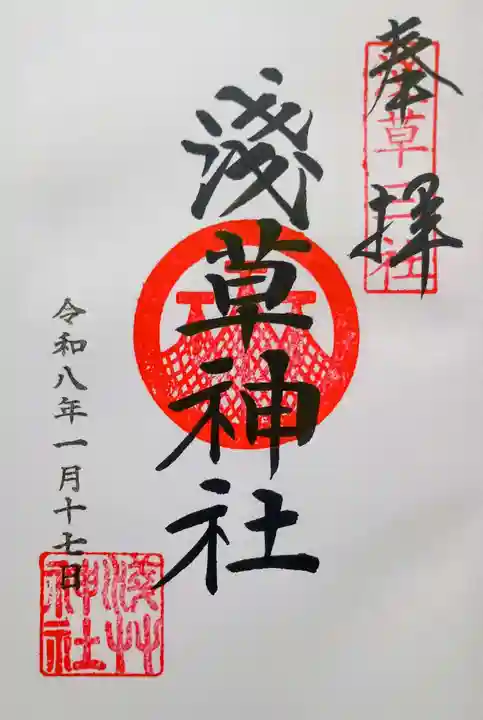 奉拝
淺草三社
淺草神社
令和八年一月十七日
淺艸神社